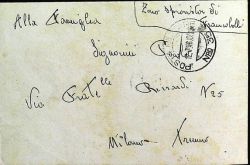 Alla Famiglia
Zona sprovvista di
francobolli
Signorini
POSTA
Via Fratelli Rizzardi N 25
Milano Trenno